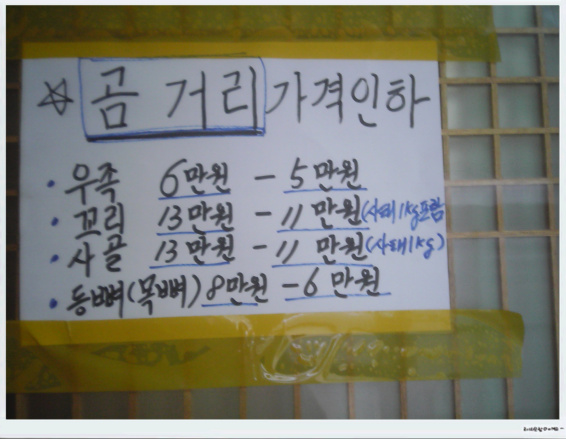 ☆ 곰 거리 가격인하
· 우족 6만원 - 5만원
· 꼬리 13만원 - 11만원(사태1kg포함
· 사골 13만원 - 11만원(사태1kg)
· 등뼈(목뼈) 8만원 - 6만원